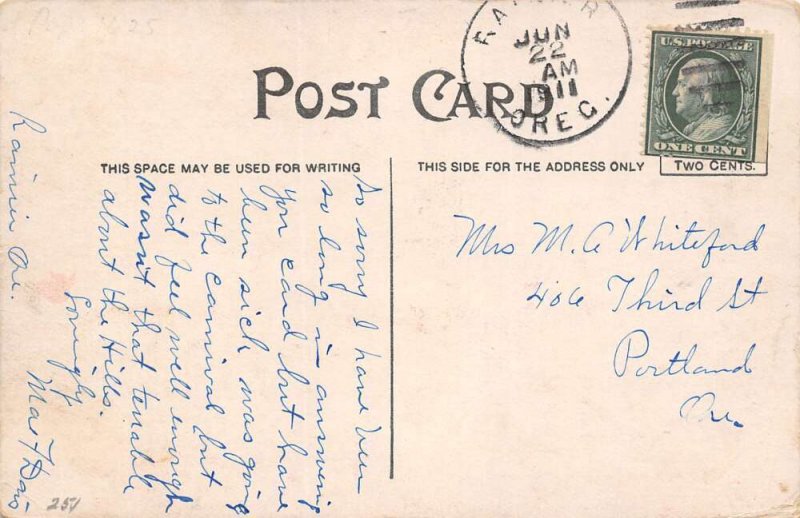 POST CARD
RAINIER
JUN
22
AM
1911
OREG.
U.S. POSTAGE
ONE CENT
TWO CENTS.
THIS SPACE MAY BE USED FOR WRITING
THIS SIDE FOR THE ADDRESS ONLY
Rainier Ore.
So sorry I have been
so long in answering
you card but have
been sick was going
to the carnival but
did feel well enough
Wasn't that terrible
about the Hills.
Lovingly
Mae Davis
Mrs M. A Whiteford
406 Third St
Portland
Ore.
251